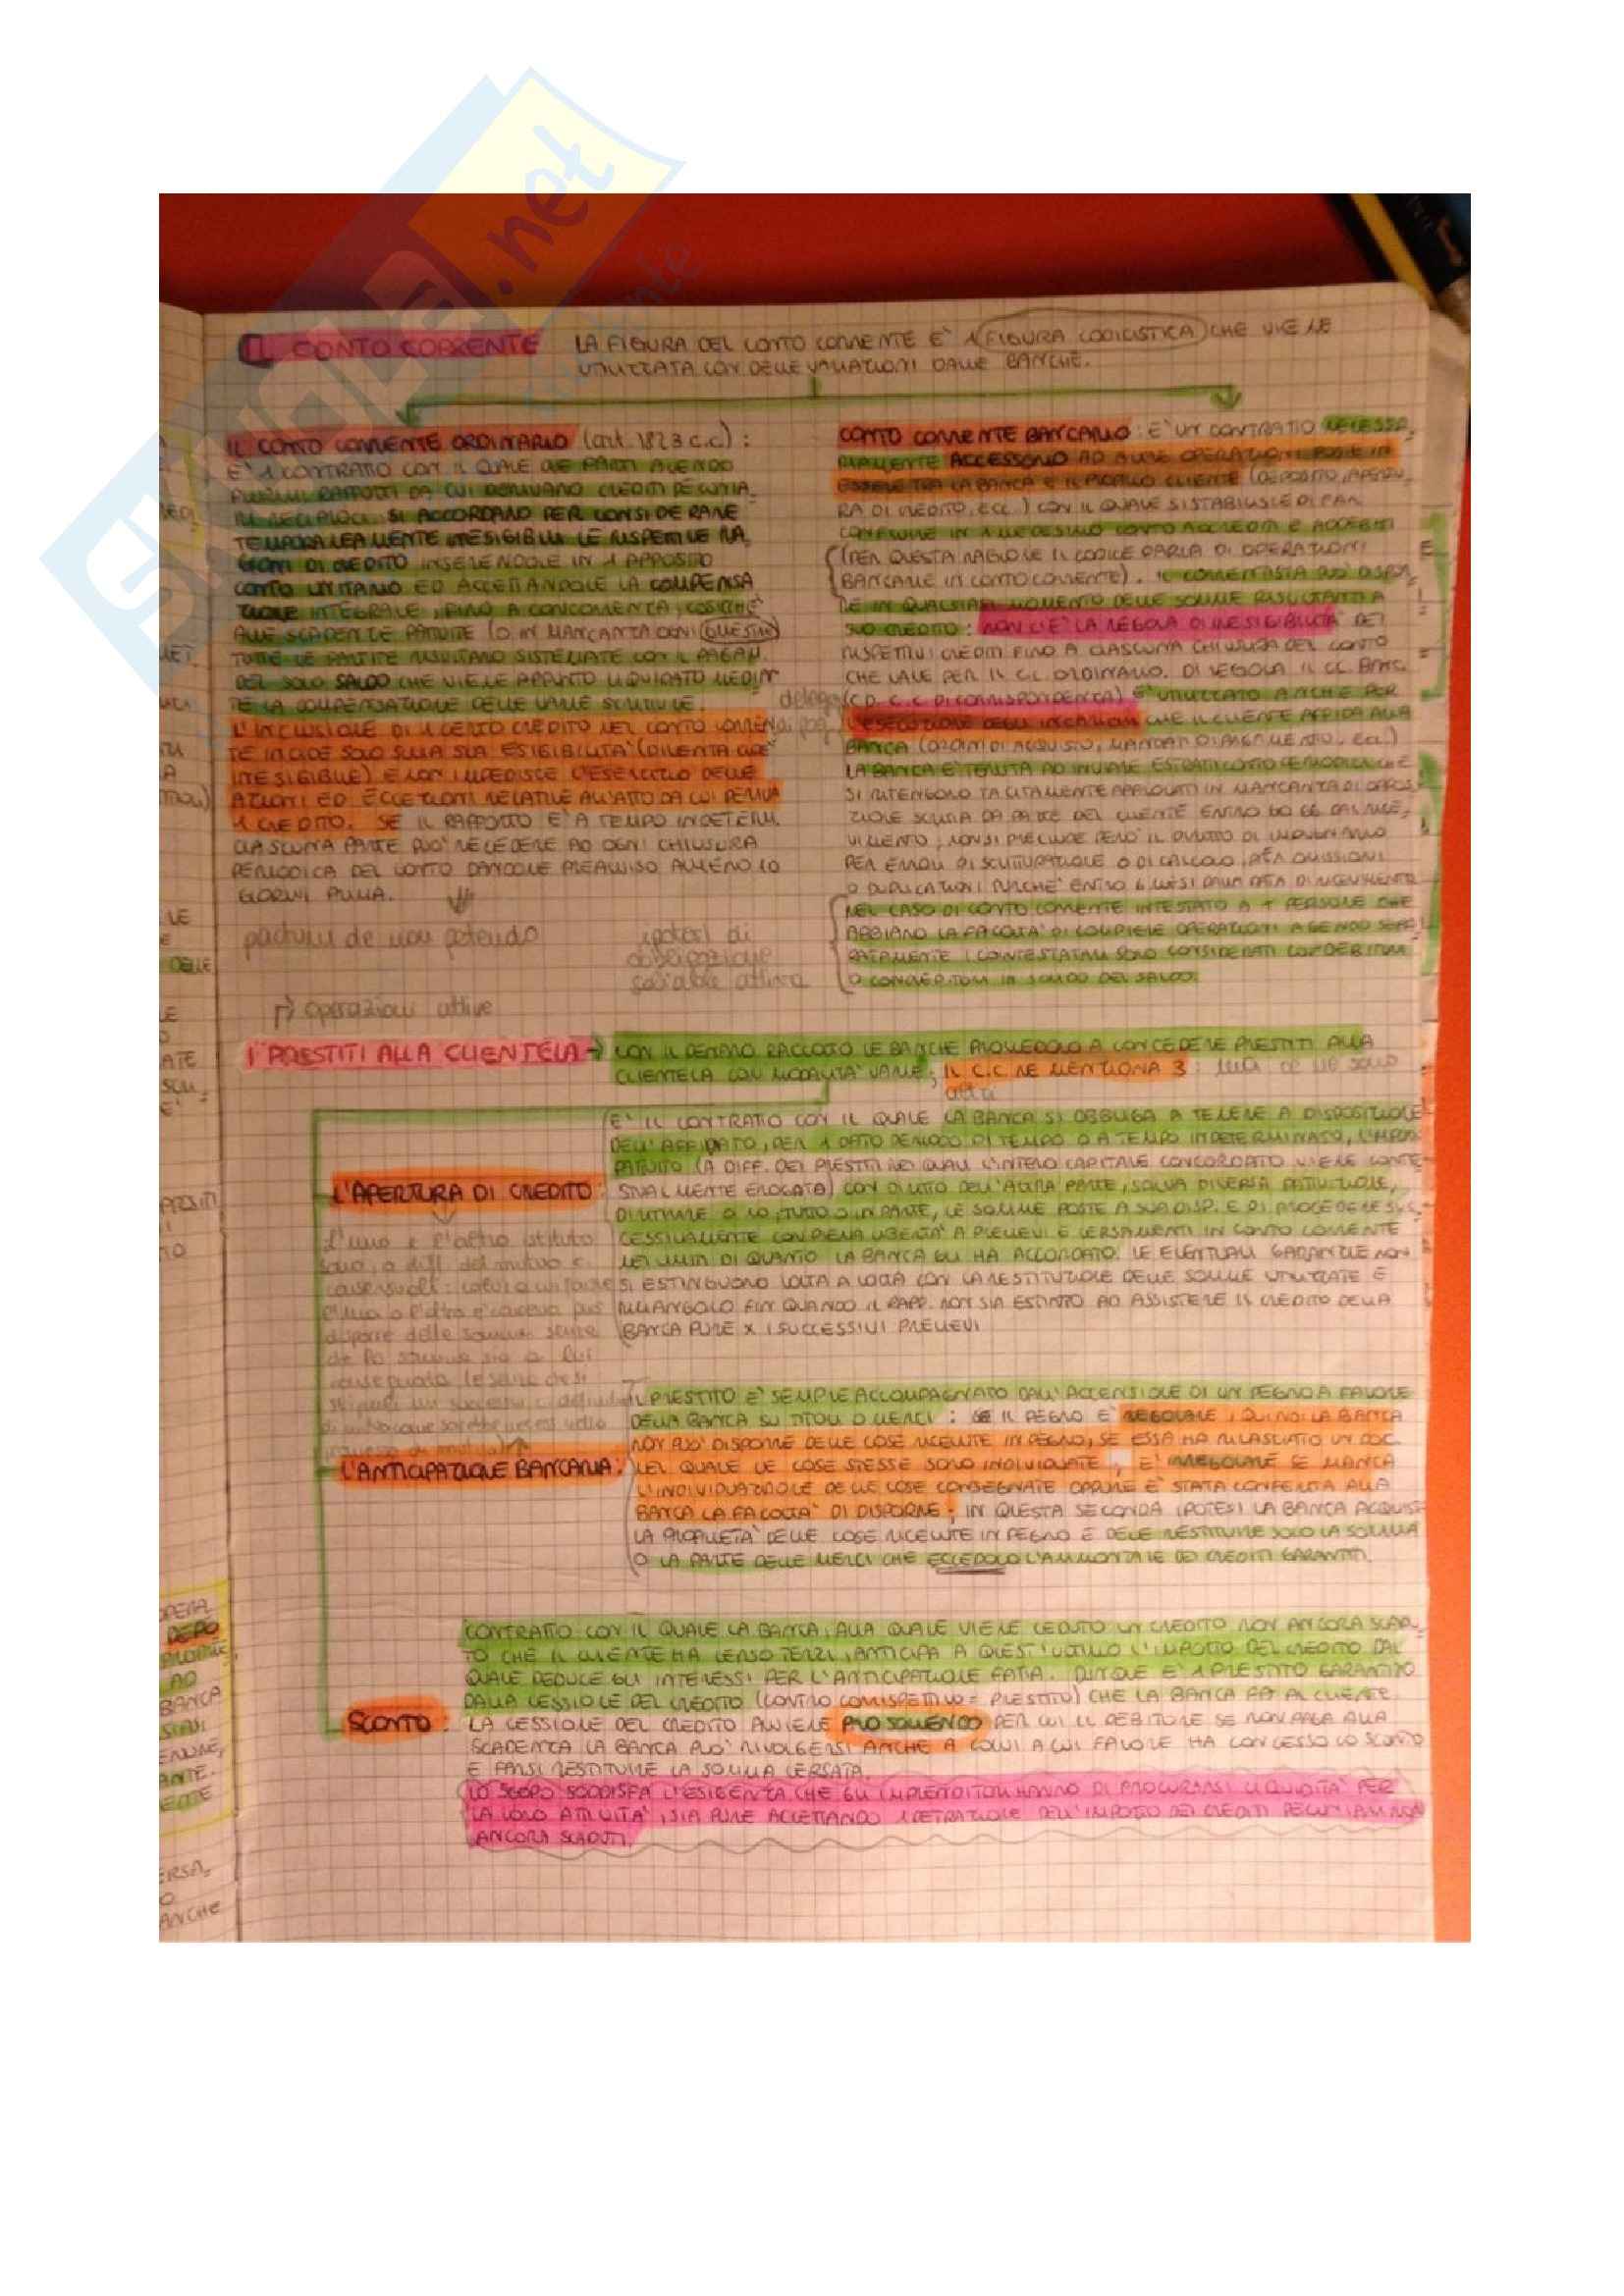 IL CONTO CORRENTE LA FIGURA DEL CONTO CORRENTE E' 1 FIGURA CODICISTICA CHE VIENE
UTILIZZATA CON DELLE VARIAZIONI DALLE BANCHE.
IL CONTO CORRENTE ORDINARIO (art. 1823 c.c.) :
E' 1 CONTRATTO CON IL QUALE DUE PARTI AVENDO
PLURIMI RAPPORTI DA CUI DERIVANO CREDITI PECUNIA-
RI RECIPROCI SI ACCORDANO PER CONSIDERARE
TEMPORANEAMENTE INESIGIBILI LE RISPETTIVE RA
GIONI DI CREDITO INSERENDOLE IN 1 APPOSITO
CONTO UNITARIO ED ACCETTANDONE LA COMPENSA
ZIONE INTEGRALE, FINO A CONCORRENZA, COSICCHE'
ALLE SCADENZE PATTUITE (O IN MANCANZA OGNI SEMESTRE)
TUTTE LE PARTITE RISULTANO SISTEMATE CON IL PAGAM.
DEL SOLO SALDO CHE VIENE APPUNTO LIQUIDATO MEDIAN
TE LA COMPENSAZIONE DELLE VARIE SCRITTURE.
L'INCLUSIONE DI 1 CERTO CREDITO NEL CONTO CORREN
TE INCIDE SOLO SULLA SUA ESIGIBILITA' (DIVENTA CIOE'
INESIGIBILE) E NON IMPEDISCE L'ESERCIZIO DELLE
AZIONI ED ECCEZIONI RELATIVE ALL'ATTO DA CUI DERIVA
1 CREDITO. SE IL RAPPORTO E' A TEMPO INDETERM.
CIASCUNA PARTE PUO' RECEDERE AD OGNI CHIUSURA
PERIODICA DEL CONTO DANDONE PREAVVISO ALMENO 10
GIORNI PRIMA.
pactum de non petendo
CONTO CORRENTE BANCARIO : E' UN CONTRATTO NECESSA-
RIAMENTE ACCESSORIO AD ALTRE OPERAZIONI POSTE IN
ESSERE TRA LA BANCA E IL PROPRIO CLIENTE (DEPOSITO, APERTU
RA DI CREDITO, ECC.) CON IL QUALE SI STABILISCE DI FAR
CONFLUIRE IN 1 MEDESIMO CONTO ACCREDITI E ADDEBITI
(PER QUESTA RAGIONE IL CODICE PARLA DI OPERAZIONI
BANCARIE IN CONTO CORRENTE). IL CORRENTISTA PUO' DISPOR
RE IN QUALSIASI MOMENTO DELLE SOMME RISULTANTI A
SUO CREDITO : NON C'E' LA REGOLA DI INESIGIBILITA' DEI
RISPETTIVI CREDITI FINO A CIASCUNA CHIUSURA DEL CONTO
CHE VALE PER IL C.C. ORDINARIO. DI REGOLA IL CC BANC.
(C.D. C.C. DI CORRISPONDENZA) E' UTILIZZATO ANCHE PER
L'ESECUZIONE DEGLI INCARICHI CHE IL CLIENTE AFFIDA ALLA
BANCA (ORDINI DI ACQUISTO, MANDATI DI PAGAMENTO, ECC.)
LA BANCA E' TENUTA AD INVIARE ESTRATTI CONTO PERIODICI CHE
SI RITENGONO TACITAMENTE APPROVATI IN MANCANZA DI OPPOSI
ZIONE SCRITTA DA PARTE DEL CLIENTE ENTRO 60 GG DAL RICE-
VIMENTO ; NON SI PRECLUDE PERO' IL DIRITTO DI IMPUGNARLO
PER ERRORI DI SCRITTURAZIONE O DI CALCOLO, PER OMISSIONI
O DUPLICAZIONI PURCHE' ENTRO 6 MESI DALLA DATA DI RICEVIMENTO
NEL CASO DI CONTO CORRENTE INTESTATO A + PERSONE CHE
ABBIANO LA FACOLTA' DI COMPIERE OPERAZIONI AGENDO SEPA
RATAMENTE I COINTESTATARI SONO CONSIDERATI CONDEBITORI
O CONCREDITORI IN SOLIDO DEL SALDO.
ipotesi di
obbligazione
solidale attiva
operazioni attive
I PRESTITI ALLA CLIENTELA → CON IL DENARO RACCOLTO LE BANCHE PROVVEDONO A CONCEDERE PRESTITI ALLA
CLIENTELA CON MODALITA' VARIE ; IL C.C NE MENZIONA 3 : ma ce ne sono
altri
L'APERTURA DI CREDITO :
E' IL CONTRATTO CON IL QUALE LA BANCA SI OBBLIGA A TENERE A DISPOSIZIONE
DELL'AFFIDATO, PER 1 DATO PERIODO DI TEMPO O A TEMPO INDETERMINATO, L'IMPOR
PATTUITO (A DIFF. DEI PRESTITI NEI QUALI L'INTERO CAPITALE CONCORDATO VIENE CONTE
STUALMENTE EROGATO) CON DIRITTO DELL'ALTRA PARTE, SALVA DIVERSA PATTUIZIONE,
DI UTILIZZARE O NO, TUTTO O IN PARTE, LE SOMME POSTE A SUA DISP. E DI PROCEDERE SUC-
CESSIVAMENTE CON PIENA LIBERTA' A PRELIEVI E VERSAMENTI IN CONTO CORRENTE
NEI LIMITI DI QUANTO LA BANCA GLI HA ACCORDATO. LE EVENTUALI GARANZIE NON
SI ESTINGUONO VOLTA A VOLTA CON LA RESTITUZIONE DELLE SOMME UTILIZZATE E
RIMANGONO FIN QUANDO IL RAPP. NON SIA ESTINTO AD ASSISTERE IL CREDITO DELLA
BANCA PURE X I SUCCESSIVI PRELIEVI
L'uno e l'altro istituto
sono, a diff. del mutuo
L'ANTICIPAZIONE BANCARIA :
IL PRESTITO E' SEMPRE ACCOMPAGNATO DALL'ACCENSIONE DI UN PEGNO A FAVORE
DELLA BANCA SU TITOLI O MERCI : IL PEGNO E' REGOLARE, QUINDI LA BANCA
NON PUO' DISPORRE DELLE COSE RICEVUTE IN PEGNO, SE ESSA HA RILASCIATO UN DOC.
NEL QUALE LE COSE STESSE SONO INDIVIDUATE ; E' IRREGOLARE SE MANCA
L'INDIVIDUAZIONE DELLE COSE CONSEGNATE OPPURE E' STATA CONFERITA ALLA
BANCA LA FACOLTA' DI DISPORNE ; IN QUESTA SECONDA IPOTESI LA BANCA ACQUIS
LA PROPRIETA' DELLE COSE RICEVUTE IN PEGNO E DEVE RESTITUIRE SOLO LA SOMMA
O LA PARTE DELLE MERCI CHE ECCEDONO L'AMMONTARE DEI CREDITI GARANTITI.
SCONTO :
CONTRATTO CON IL QUALE LA BANCA, ALLA QUALE VIENE CEDUTO UN CREDITO NON ANCORA SCADU-
TO CHE IL CLIENTE HA VERSO TERZI, ANTICIPA A QUEST'ULTIMO L'IMPORTO DEL CREDITO DAL
QUALE DEDUCE GLI INTERESSI PER L'ANTICIPAZIONE FATTA. DUNQUE E' 1 PRESTITO GARANTITO
DALLA CESSIONE DEL CREDITO (CONTRO CORRISPETTIVO = PRESTITO) CHE LA BANCA FA AL CLIENTE
LA CESSIONE DEL CREDITO AVVIENE PRO SOLVENDO PER CUI IL DEBITORE SE NON PAGA ALLA
SCADENZA LA BANCA PUO' RIVOLGERSI ANCHE A COLUI A CUI FAVORE HA CONCESSO LO SCONTO
E FARSI RESTITUIRE LA SOMMA VERSATA.
LO SCOPO SODDISFA L'ESIGENZA CHE GLI IMPRENDITORI HANNO DI PROCURARSI LIQUIDITA' PER
LA LORO ATTIVITA', SIA PURE ACCETTANDO 1 DETRAZIONE DELL'IMPORTO DEI CREDITI PECUNIARI NON
ANCORA SCADUTI.